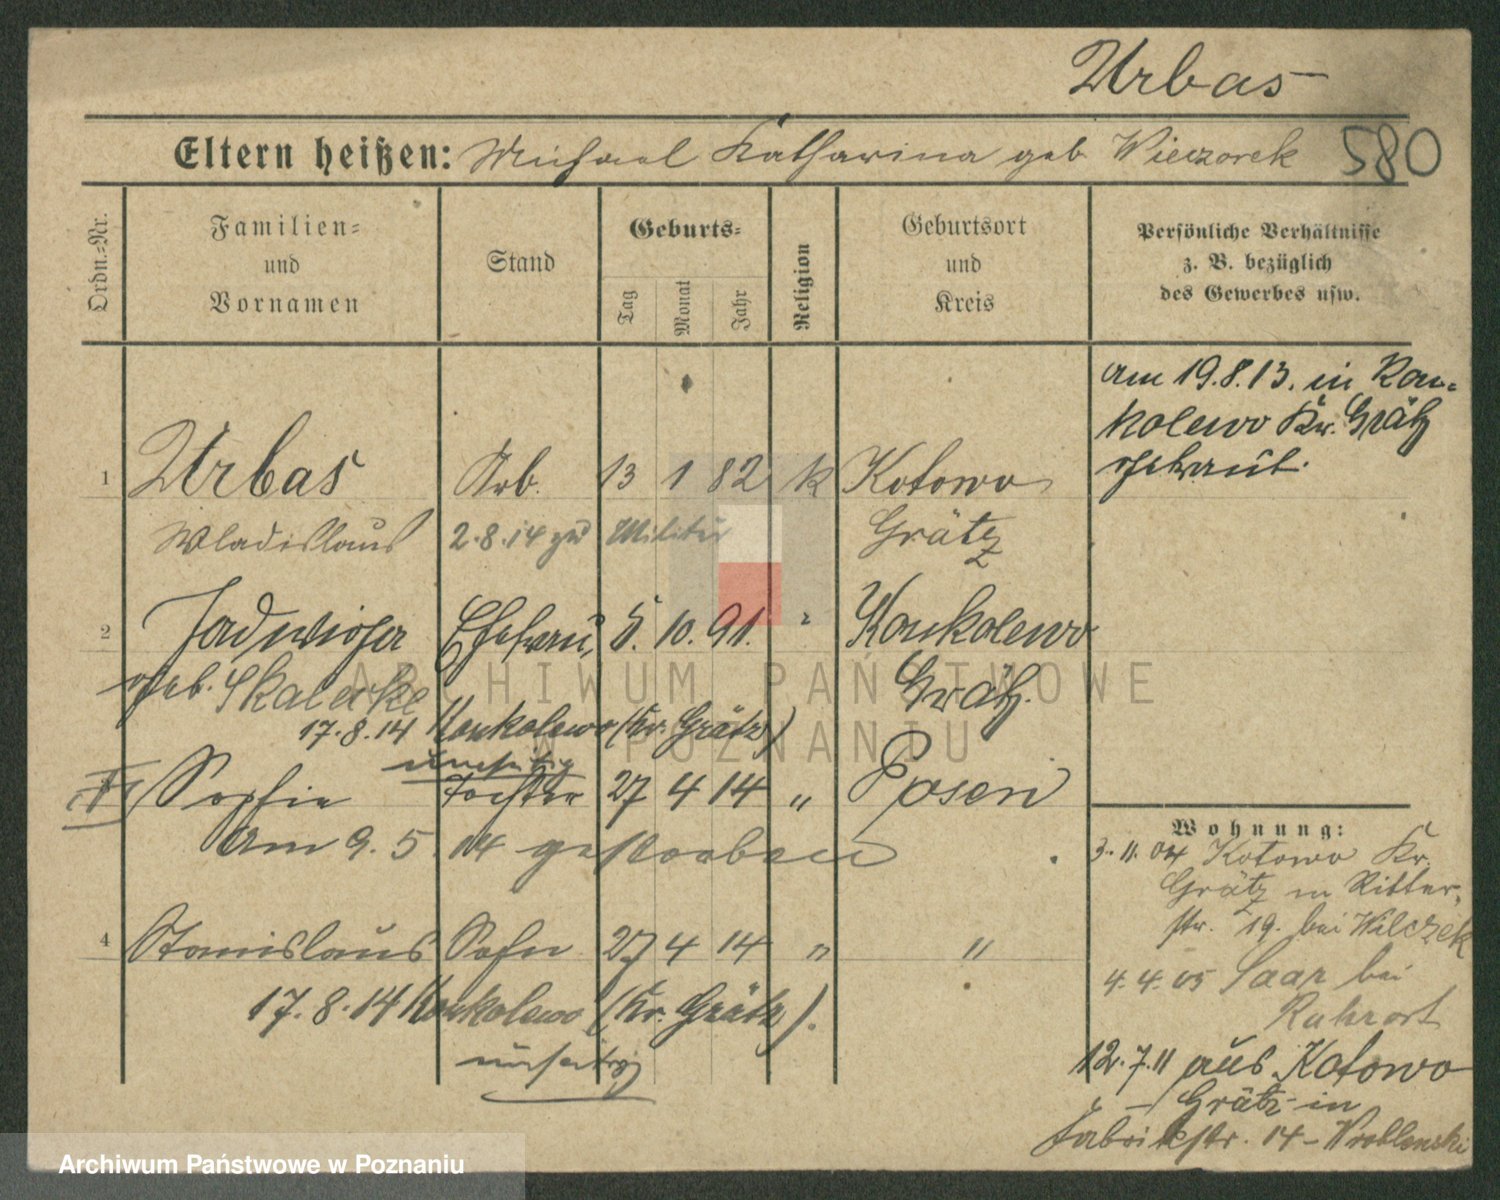 Urbas
Eltern heißen: Michael Katharina geb Wieczorek 580
Ordn.=Nr.
Familien=
und
Vornamen
Stand
Geburts=
Tag
Monat
Jahr
Religion
Geburtsort
und
Kreis
Persönliche Verhältnisse
z. B. bezüglich
des Gewerbes usw.
am 19.8.13. in Kon-
kolewo Kr. Grätz
getraut.
1 Urbas Arb. 13 1 82 k Kotowo
Wladislaus 2.8.14 zu Militär Grätz
2 Jadwiga Ehefrau 5. 10. 91. " Konkolewo
geb. Skalecke Grätz.
17.8.14 Konkolewo (Kr. Grätz)
umseitig
Sophie Tochter 27 4 14 " Posen
Am 9. 5. 14 gestorben
4 Stanislaus Sohn 27 4 14 " "
17.8.14 Konkolewo (Kr. Grätz).
umseitig
Wohnung:
3.11.04 Kotowo Kr.
Grätz in Ritter-
str. 19. bei Wilczek
4.4.05 Saar bei
Ruhrort
12.7.11 aus Kotowo
- Grätz in
Fabrikstr. 14 - Wroblewski
ARCHIWUM PAŃSTWOWE
W POZNANIU
Archiwum Państwowe w Poznaniu